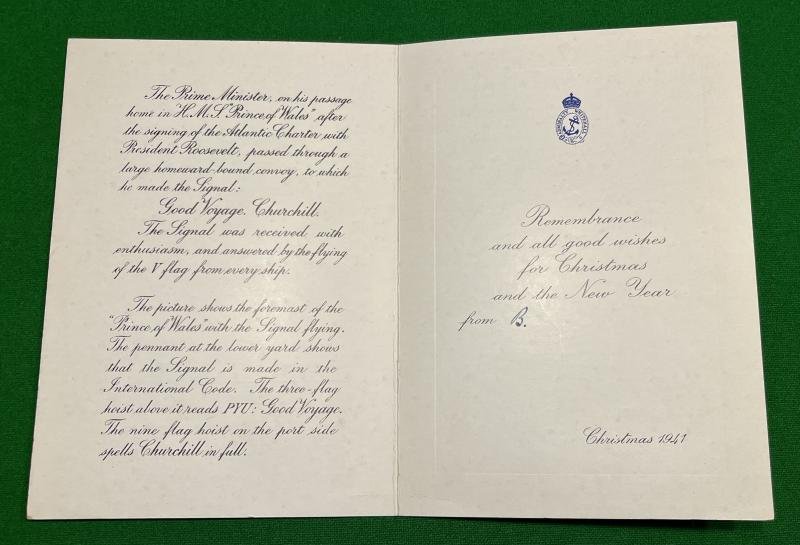 The Prime Minister, on his passage
home in H.M.S. "Prince of Wales" after
the signing of the Atlantic Charter with
President Roosevelt, passed through a
large homeward-bound convoy, to which
he made the Signal:
Good Voyage. Churchill.
The Signal was received with
enthusiasm, and answered by the flying
of the V flag from every ship.
The picture shows the foremast of the
"Prince of Wales" with the Signal flying.
The pennant at the lower yard shows
that the Signal is made in the
International Code. The three-flag
hoist above it reads PYU: Good Voyage.
The nine flag hoist on the port side
spells Churchill in full.
ADMIRALTY WHITEHALL
Remembrance
and all good wishes
for Christmas
and the New Year
from B.
Christmas 1941